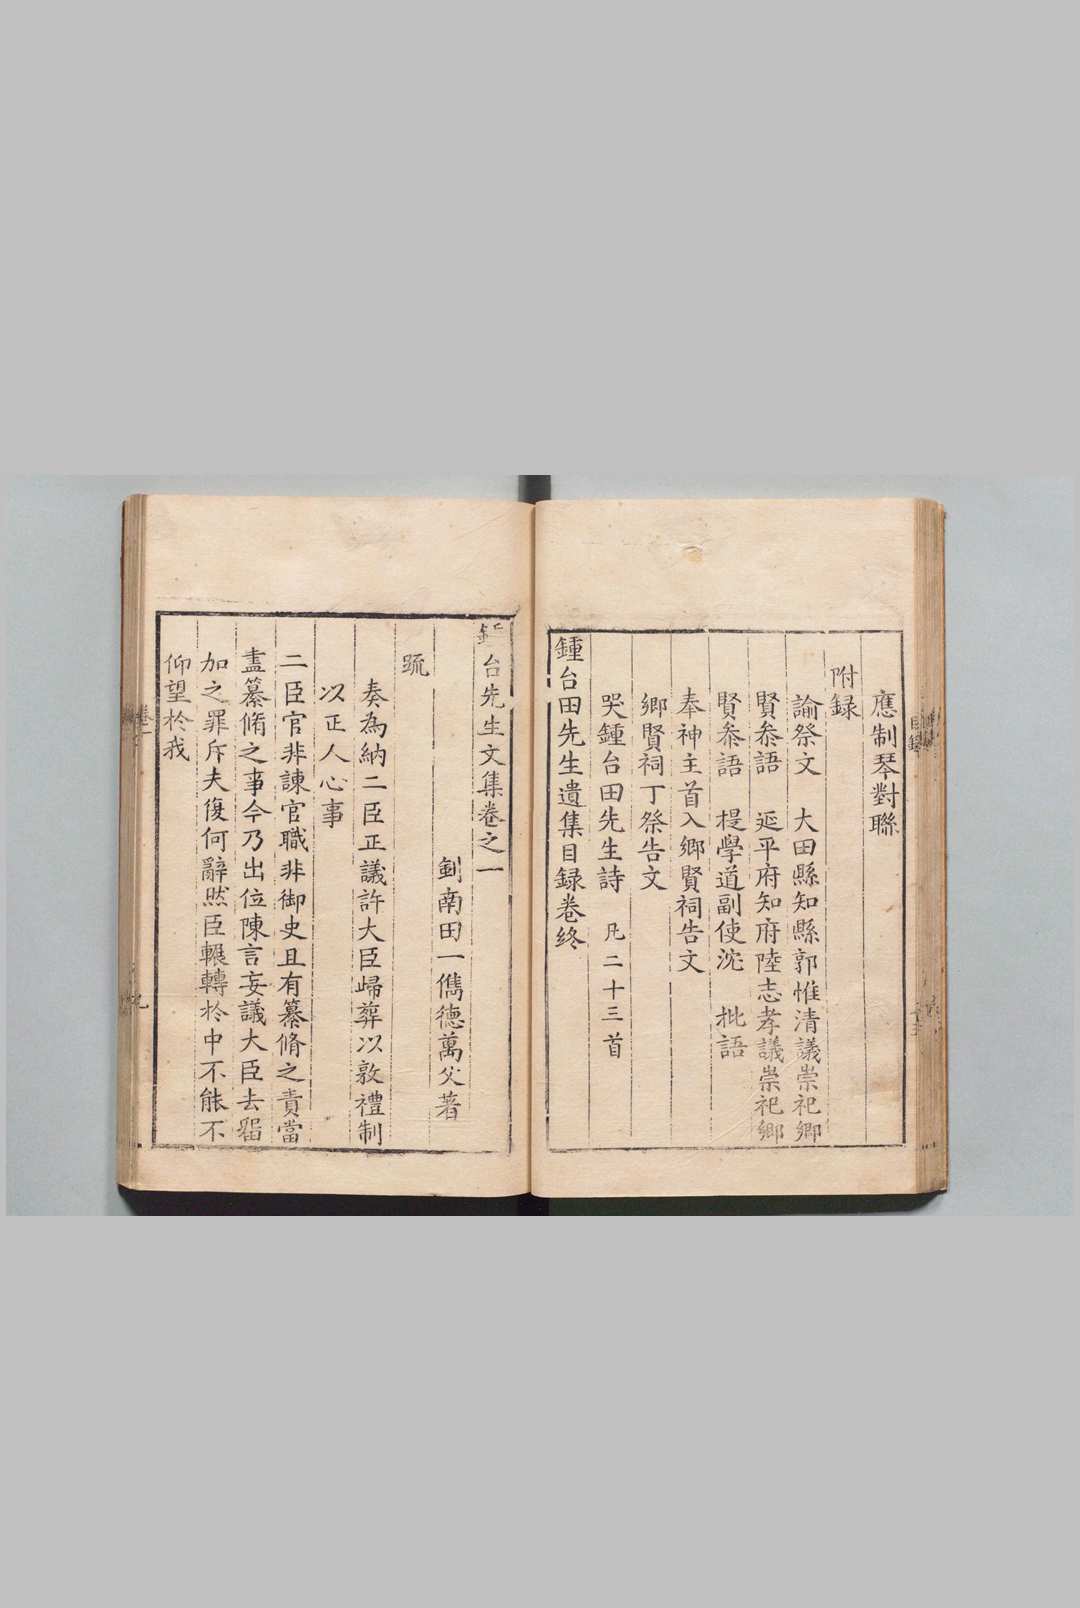 應制琴對聯
附録
諭祭文 大田縣知縣郭惟清議崇祀鄉
賢叅語 延平府知府陸志孝議崇祀鄉
賢叅語 提學道副使沈 批語
奉神主首入鄉賢祠告文
鄉賢祠丁祭告文
哭鍾台田先生詩 凡二十三首
鍾台田先生遺集目録卷終
鍾台先生文集卷之一
劍南田一儁德萬父著
疏
奏為納二臣正議許大臣歸葬以敦禮制
以正人心事
二臣官非諫官職非御史且有纂脩之責當
盡纂脩之事今乃出位陳言妄議大臣去留
加之罪斥夫復何辭然臣輾轉於中不能不
仰望於我